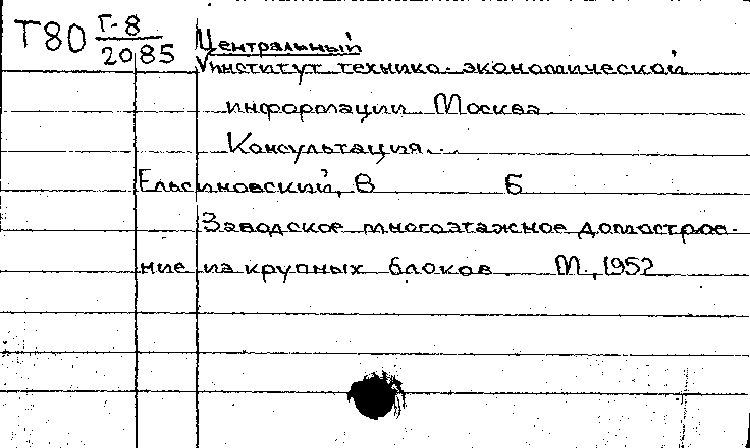 Т80 Г-8/2085 Центральный
Институт технико-экономической
информации Москва
Консультация...
Ельсиновский, В Б
Заводское многоэтажное домострое-
ние из крупных блоков М., 1952